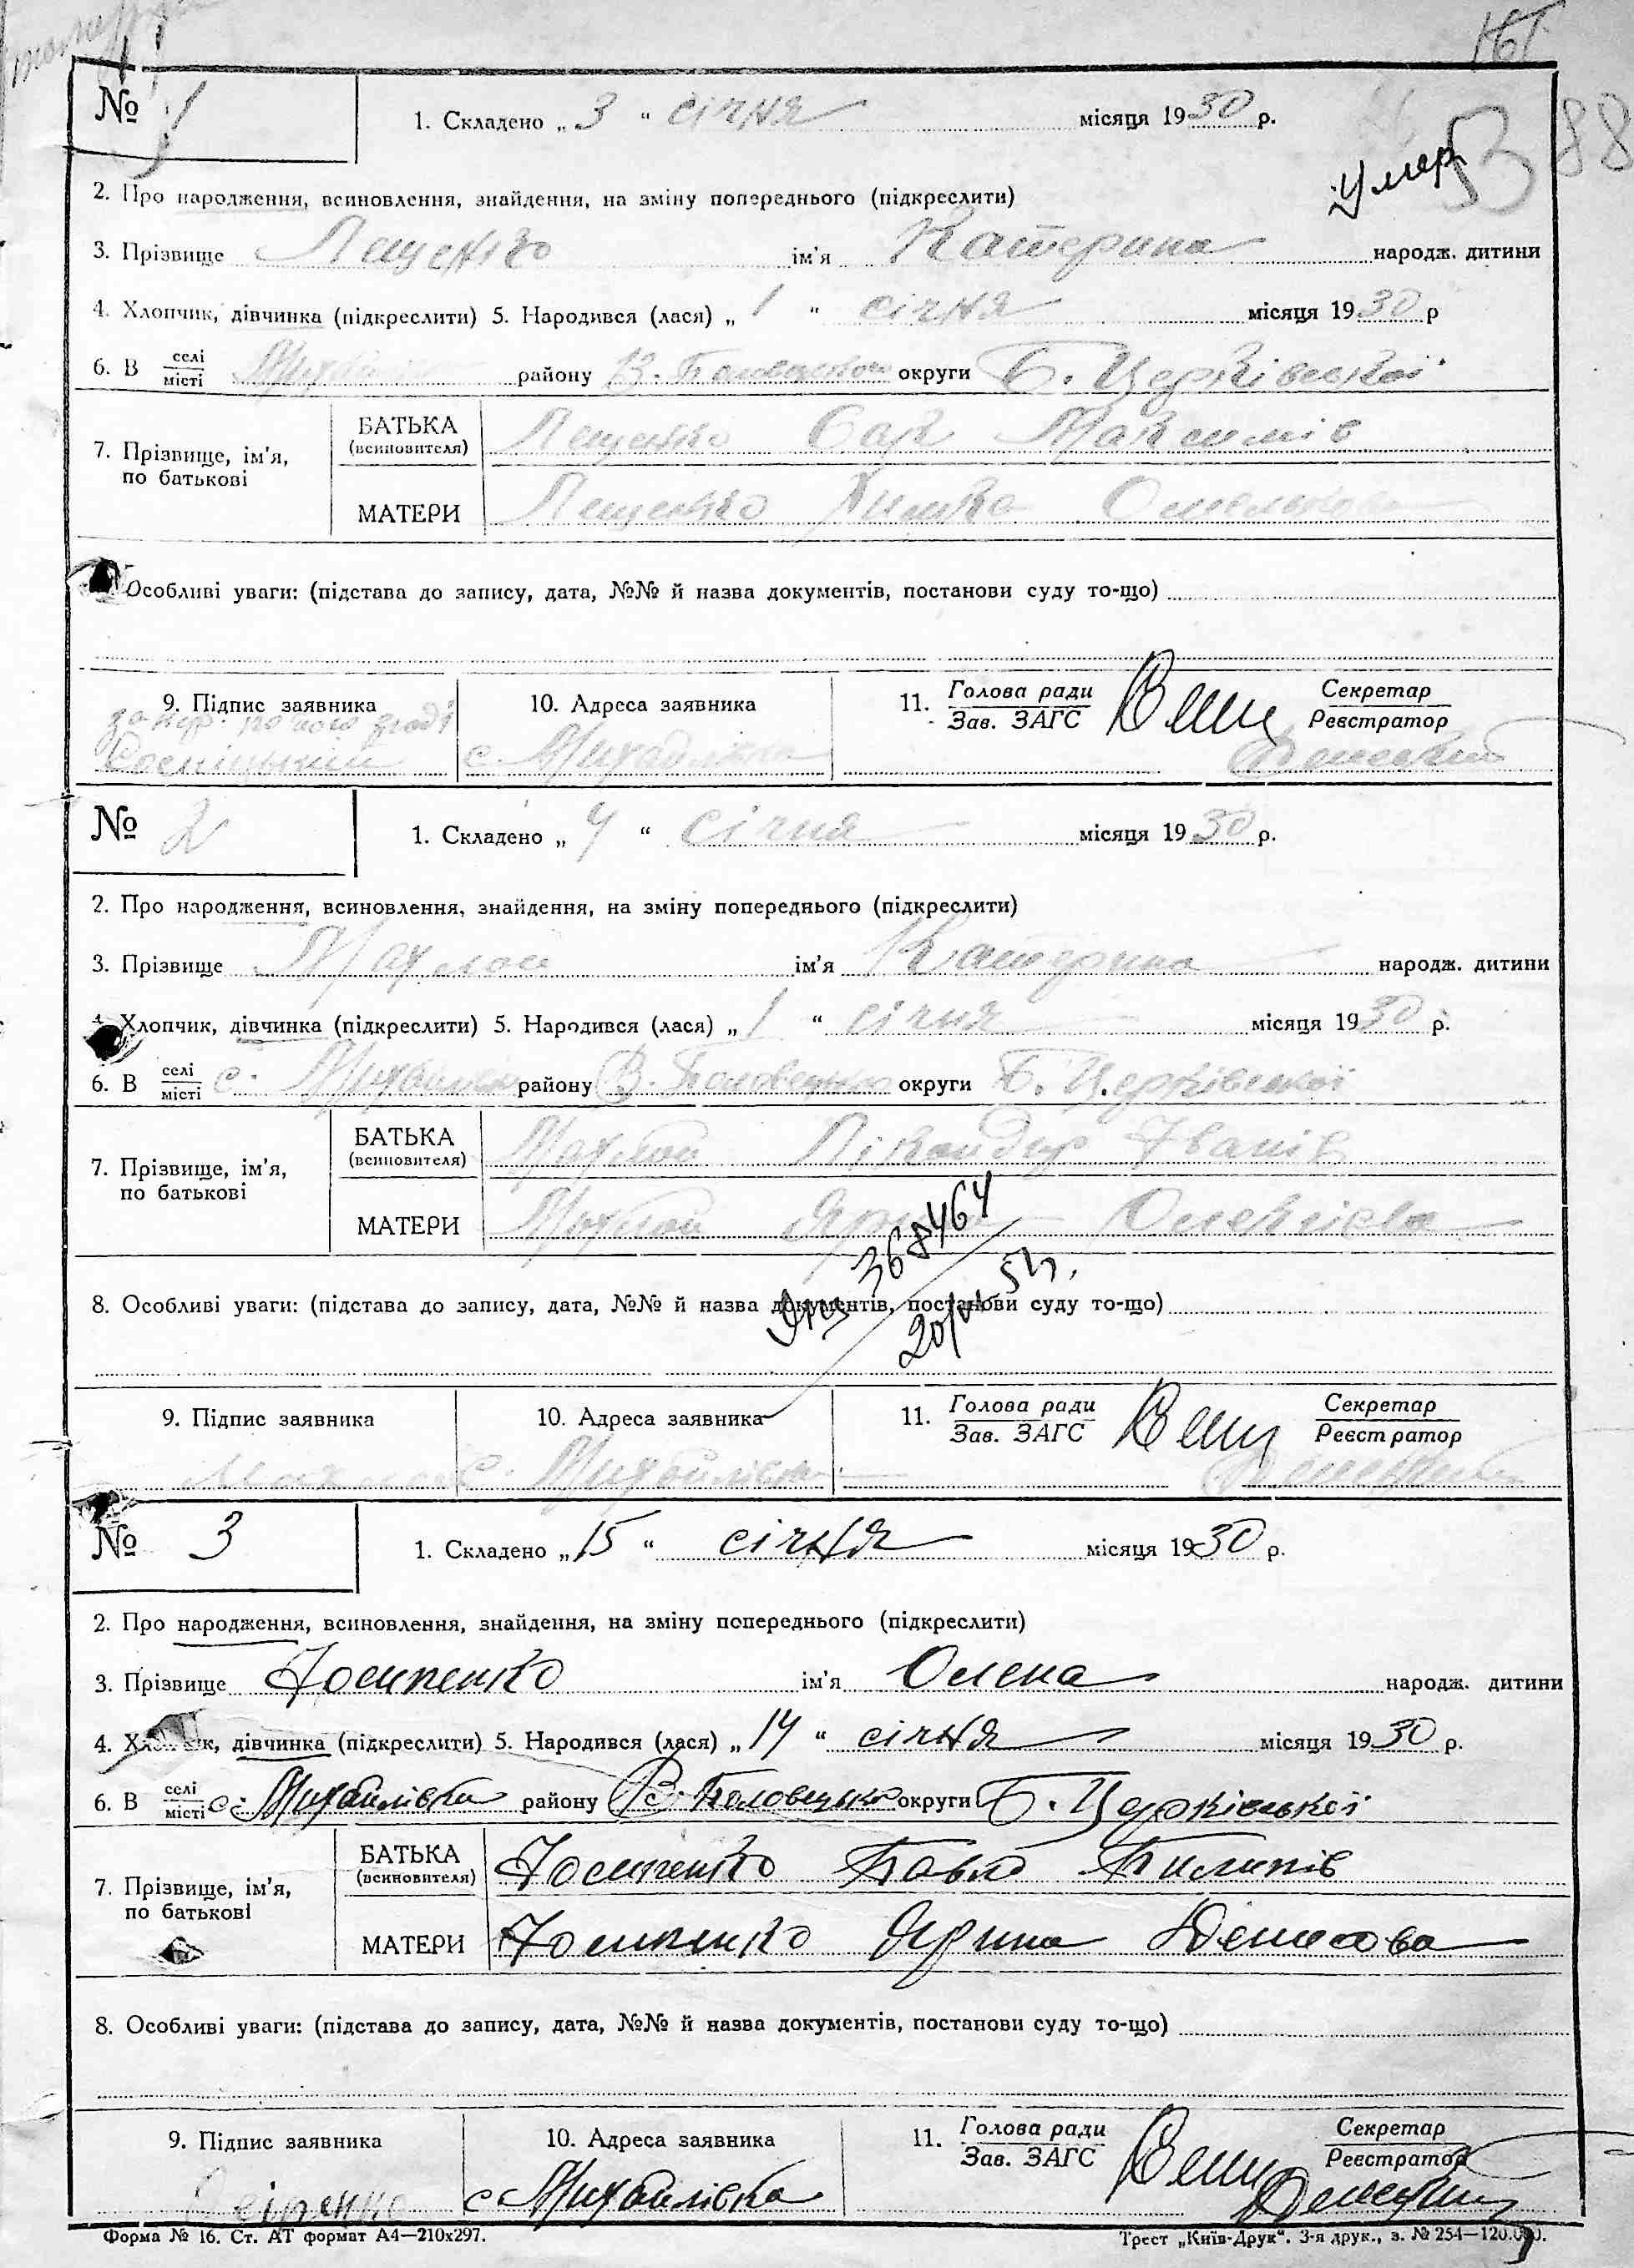 № 1
1. Складено „ 3 “ січня місяця 1930 р.
53 88
Умер
2. Про народження, всиновлення, знайдення, на зміну попереднього (підкреслити)
3. Прізвище Лещенко ім'я Катерина народж. дитини
4. Хлопчик, дівчинка (підкреслити) 5. Народився (лася) „ 1 “ січня місяця 1930 р
6. В селі/місті району В. Половецьког округи Б. Церківської
7. Прізвище, ім'я, по батькові
БАТЬКА (всиновителя) Лещенко Сак Максимів
МАТЕРИ Лещенко Химка Омелькова
Особливі уваги: (підстава до запису, дата, №№ й назва документів, постанови суду то-що)
9. Підпис заявника 10. Адреса заявника 11. Голова ради/Зав. ЗАГС Секретар/Реєстратор
за непр. по його згоді
с. Михайлівка
№ 2
1. Складено „ 4 “ січня місяця 1930 р.
2. Про народження, всиновлення, знайдення, на зміну попереднього (підкреслити)
3. Прізвище Махмой ім'я Катерина народж. дитини
4. Хлопчик, дівчинка (підкреслити) 5. Народився (лася) „ 1 “ січня місяця 1930 р.
6. В селі/місті с. Михайлівка району В. Половецько округи Б. Церківської
7. Прізвище, ім'я, по батькові
БАТЬКА (всиновителя) Махмой Лікандир Іванів
МАТЕРИ Махмой Ярина Олексієва
368464
8. Особливі уваги: (підстава до запису, дата, №№ й назва документів, постанови суду то-що)
9. Підпис заявника 10. Адреса заявника 11. Голова ради/Зав. ЗАГС Секретар/Реєстратор
Махмой с. Михайлівка
№ 3
1. Складено „ 15 “ січня місяця 1930 р.
2. Про народження, всиновлення, знайдення, на зміну попереднього (підкреслити)
3. Прізвище Йосипенко ім'я Олена народж. дитини
4. Хлопчик, дівчинка (підкреслити) 5. Народився (лася) „ 14 “ січня місяця 1930 р.
6. В селі/місті с. Михайлівка району В. Половецько округи Б. Церківської
7. Прізвище, ім'я, по батькові
БАТЬКА (всиновителя) Йосипенко Павло Пилипів
МАТЕРИ Йосипенко Ярина Денисова
8. Особливі уваги: (підстава до запису, дата, №№ й назва документів, постанови суду то-що)
9. Підпис заявника 10. Адреса заявника 11. Голова ради/Зав. ЗАГС Секретар/Реєстратор
с Михайлівка
Форма № 16. Ст. АТ формат А4—210х297. Трест „Київ-Друк“. 3-я друк., з. № 254—120.000.